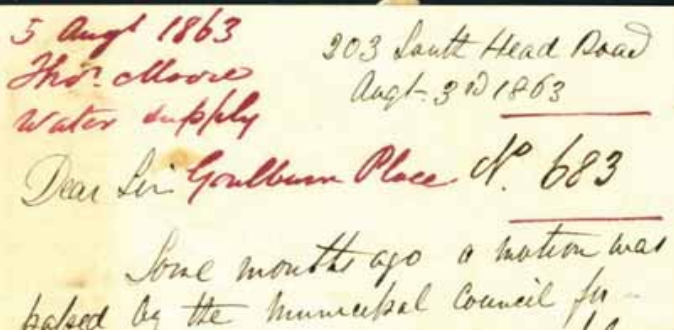 5 Augt 1863
Thos. Moore
Water Supply
203 South Head Road
Augt. 3rd 1863
Dear Sir Goulburn Place No. 683
Some months ago a motion was
passed by the Municipal Council for